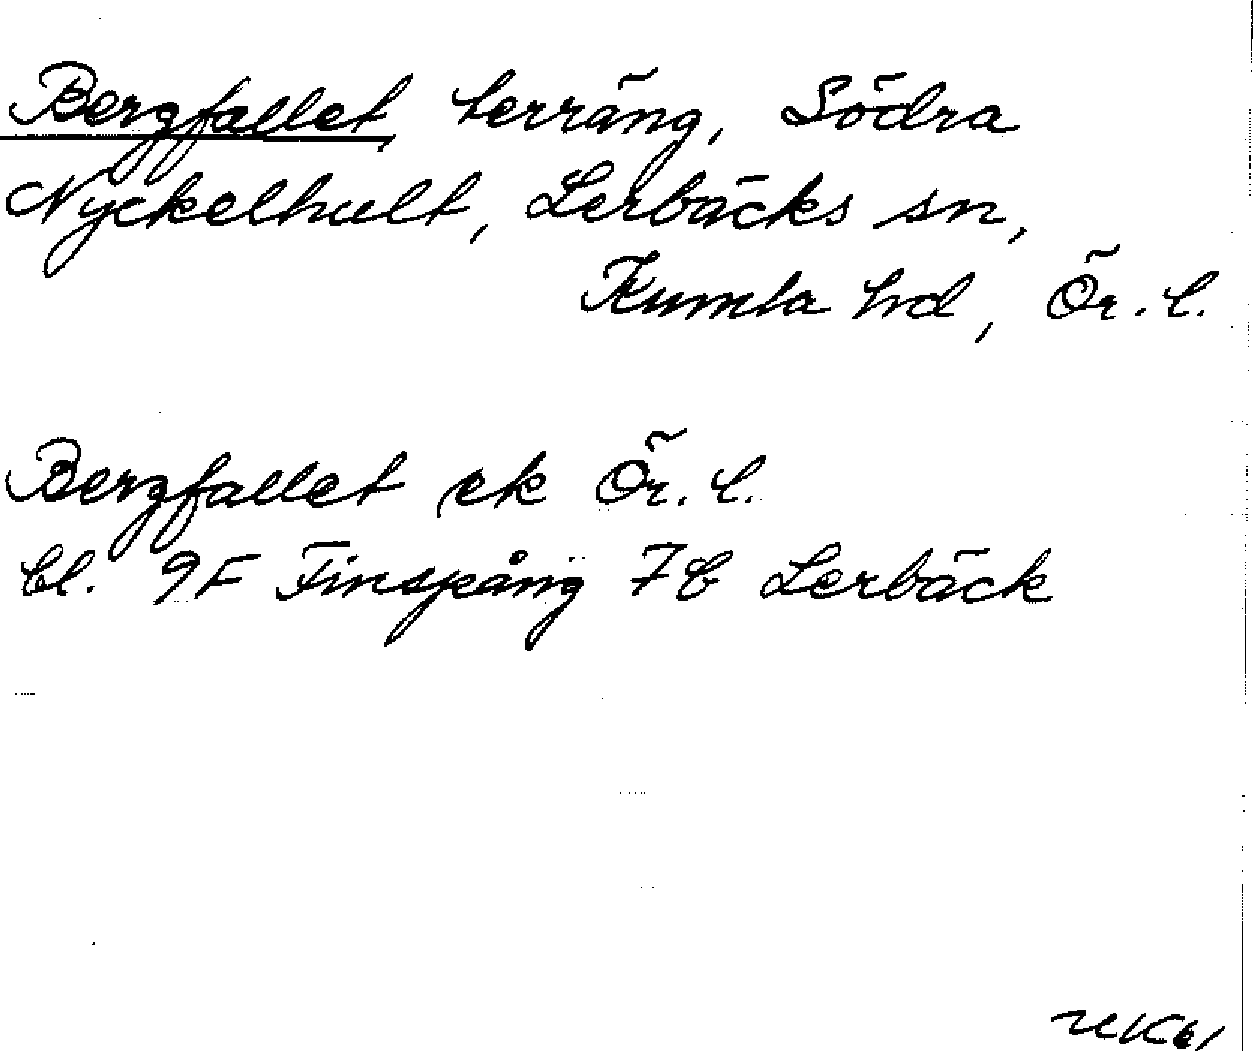 Bergfallet, terräng, Södra
Nyckelhult, Lerbäcks sn,
Kumla hd, Ör. l.
Bergfallet ek Ör. l.
bl. 9F Finspång 7b Lerbäck